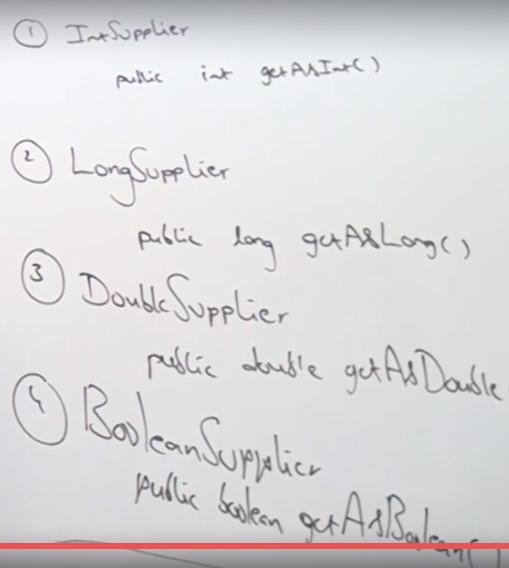 1 IntSupplier
public int getAsInt()
2 LongSupplier
public long getAsLong()
3 DoubleSupplier
public double getAsDouble
4 BooleanSupplier
public boolean getAsBoolean()